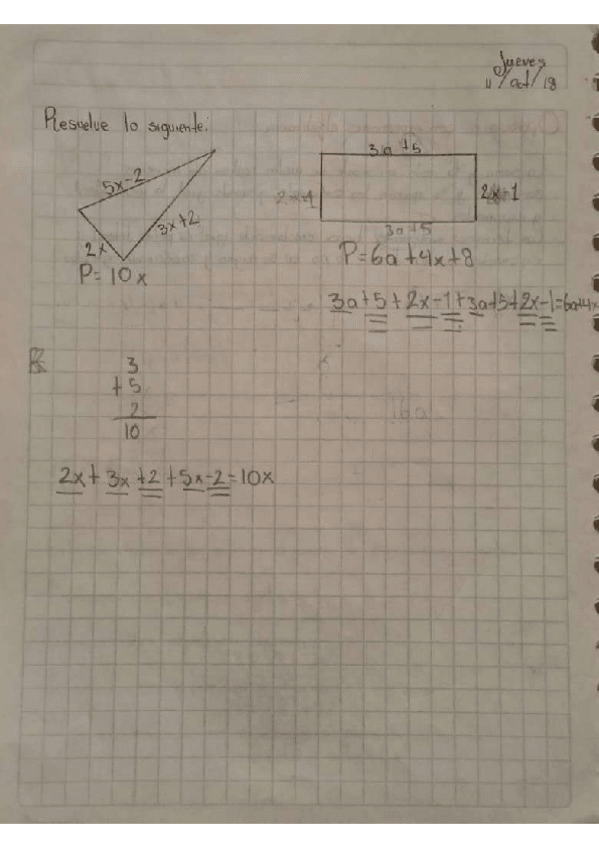 Jueves
11/oct/18
Resuelve lo siguiente.
5x-2
3x+2
2x
P=10x
3a+5
2x-1
2x-1
3a+5
P=6a+4x+8
3a+5+2x-1+3a+5+2x-1=6a+4x
3
+5
2
10
2x+3x+2+5x-2=10x